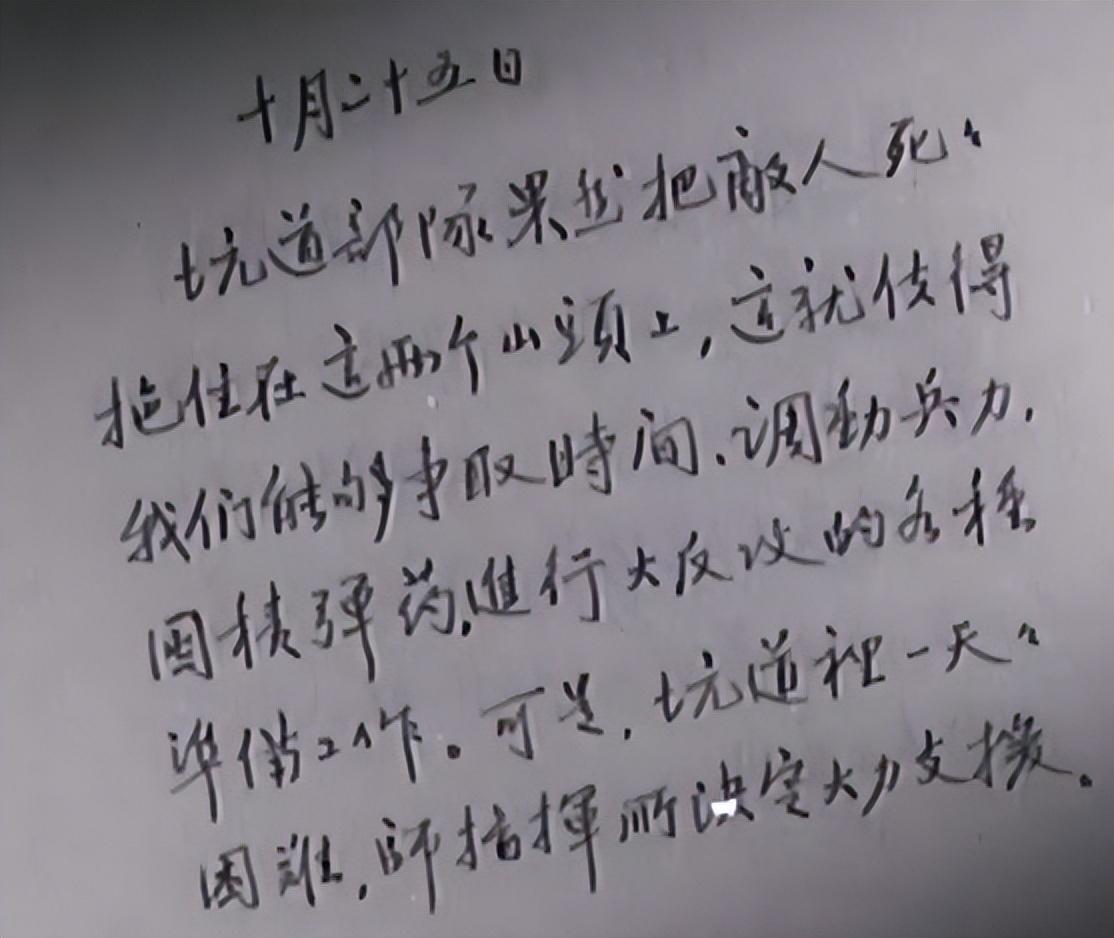 十月二十五日
坑道部隊果然把敵人死〃
拖住在這兩个山頭上，這就使得
我们能够争取時间、调動兵力、
囤積弹药，進行大反攻的各種
準備工作。可是，坑道裡一天〃
困難，師指揮所决定大力支援。